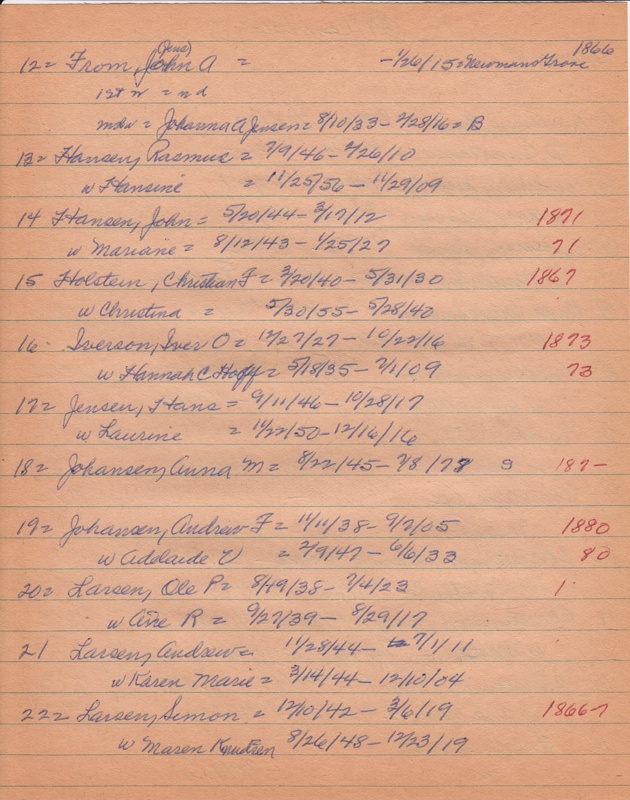 12= From, John A (Jens) = -1/26/15=Newman's Grove 1866
1st w = nd
mdw = Johanna A Jensen = 8/10/33 - 2/28/16 = B
13= Hansen, Rasmus = 7/9/46 - 2/26/10
w Hansine = 11/25/56 - 11/29/09
14 Hansen, John = 5/20/44 - 3/17/12 1871
w Mariane = 8/12/43 - 1/25/27 71
15 Holstein, Christian F = 3/20/40 - 5/31/30 1867
w Christina = 5/30/55 - 5/28/40
16 Iverson, Iver O = 12/27/27 - 10/22/16 1873
w Hannah C Hoff = 5/18/35 - 7/1/09 73
17= Jensen, Hans = 9/11/46 - 10/28/17
w Laurine = 11/22/50 - 12/16/16
18= Johansen, Anna M = 8/22/45 - 7/8/ S 187-
19= Johansen, Andrew F = 11/11/38 - 9/2/05 1880
w Adelaide V = 2/9/47 - 6/6/33 80
20= Larsen, Ole P = 8/19/38 - 7/4/23 1
w Ane R = 9/27/39 - 8/29/17
21 Larsen, Andrew = 11/28/44 - 7/1/11
w Karen Marie = 3/14/44 - 12/10/04
22= Larsen, Simon = 12/10/42 - 3/6/19 1866-7
w Maren Knudsen 8/26/48 - 12/23/19